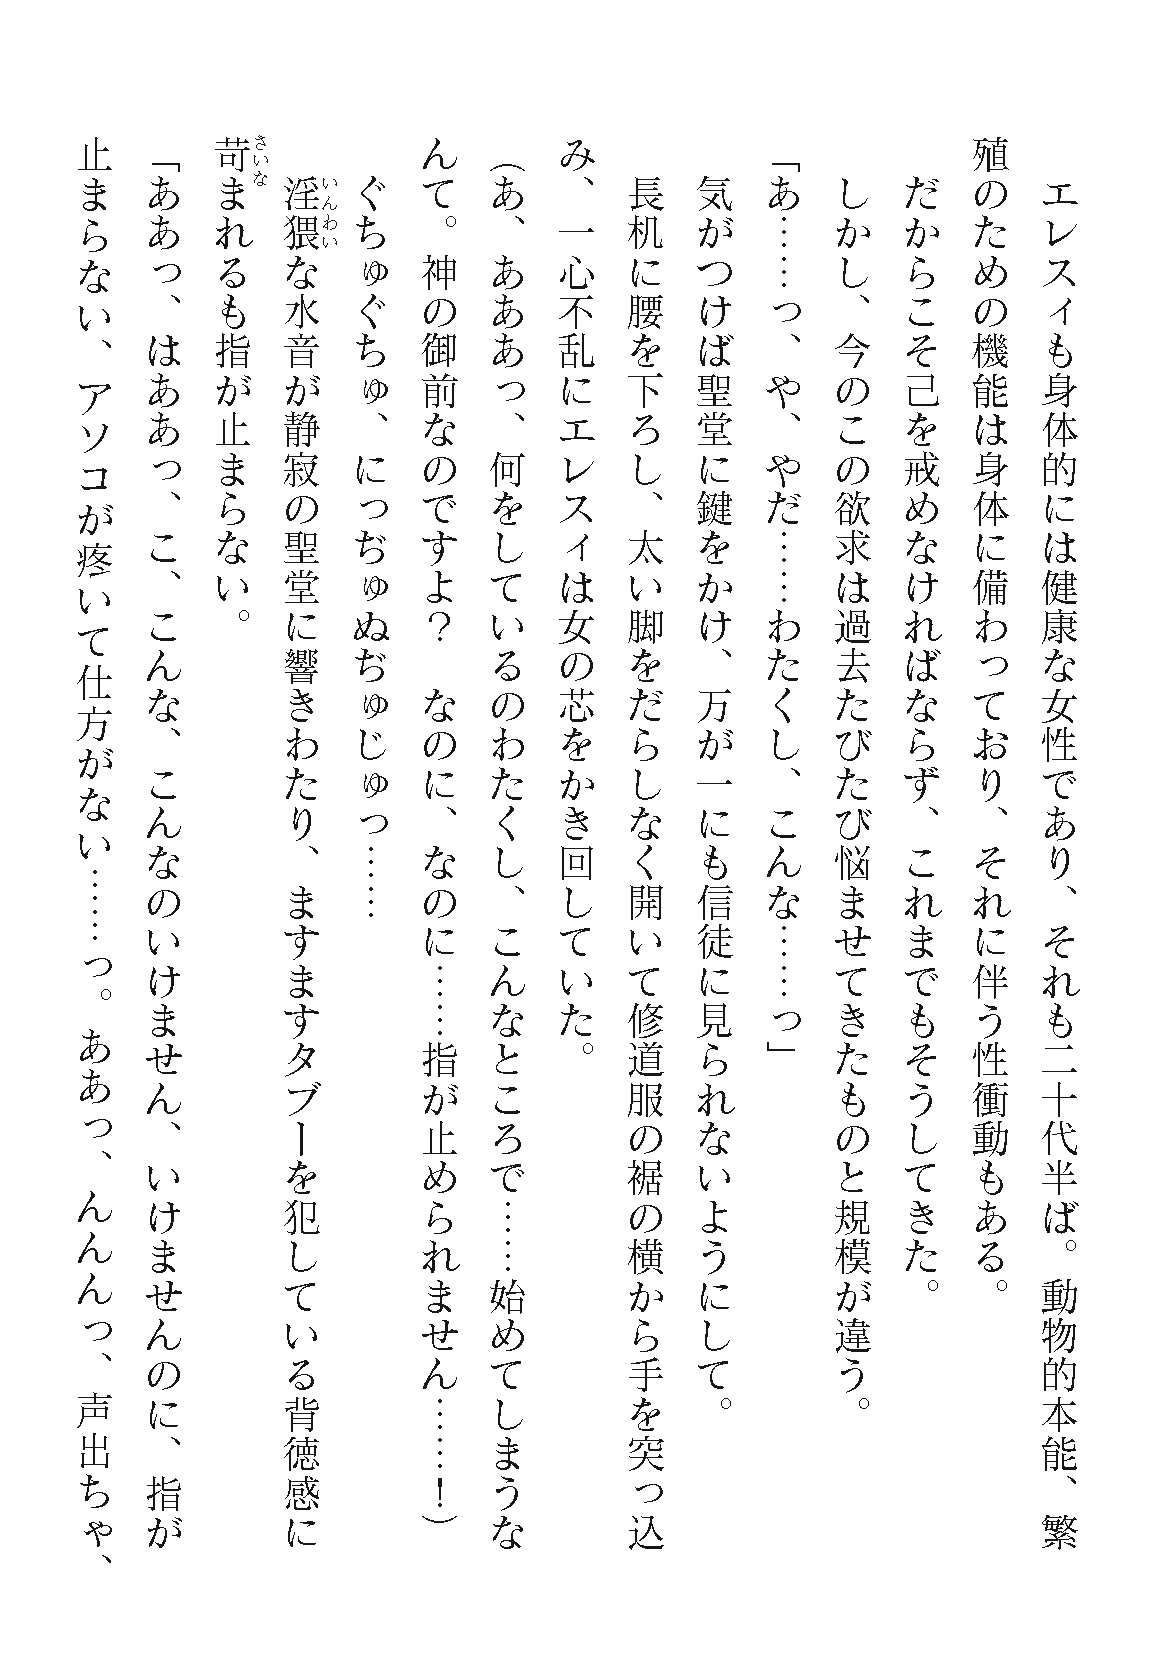 エレスィも身体的には健康な女性であり、それも二十代半ば。動物的本能、繁
殖のための機能は身体に備わっており、それに伴う性衝動もある。
だからこそ己を戒めなければならず、これまでもそうしてきた。
しかし、今のこの欲求は過去たびたび悩ませてきたものと規模が違う。
「あ……っ、や、やだ……わたくし、こんな……っ」
気がつけば聖堂に鍵をかけ、万が一にも信徒に見られないようにして。
長机に腰を下ろし、太い脚をだらしなく開いて修道服の裾の横から手を突っ込
み、一心不乱にエレスィは女の芯をかき回していた。
（あ、あああっ、何をしているのわたくし、こんなところで……始めてしまうな
んて。神の御前なのですよ？　なのに、なのに……指が止められません……！）
ぐちゅぐちゅ、にっぢゅぬぢゅじゅっ……
淫猥な水音が静寂の聖堂に響きわたり、ますますタブーを犯している背徳感に
いんわい
苛まれるも指が止まらない。
さいな
「ああっ、はああっ、こ、こんな、こんなのいけません、いけませんのに、指が
止まらない、アソコが疼いて仕方がない……っ。ああっ、んんんっ、声出ちゃ、